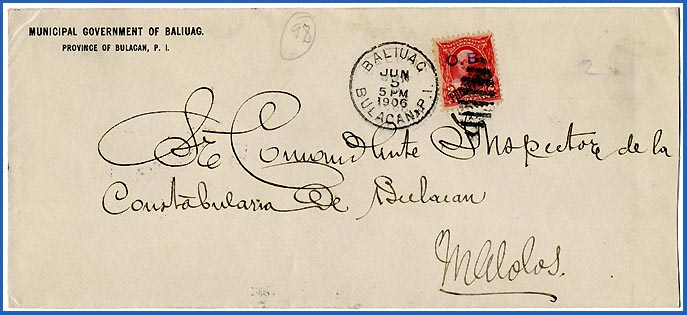 MUNICIPAL GOVERNMENT OF BALIUAG.
PROVINCE OF BULACAN, P. I.
98
BALIUAG
JUN
5
5 PM
1906
BULACAN, P.I.
O.B.
2
Sr Comandante Inspector de la
Constabularia de Bulacan
Malolos.